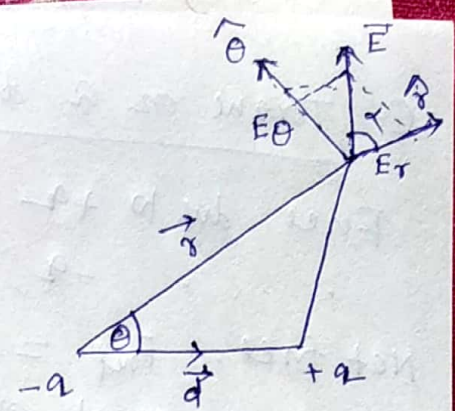 θ̂ E⃗
E_θ α r̂
E_r
r⃗
θ
-q d⃗ +q